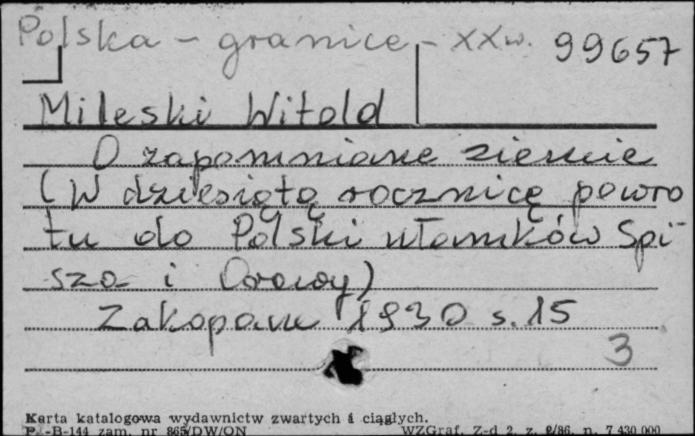 Polska - granice - XX w. 99657
Mileski Witold
O zapomniane ziemie
(W dziesiątą rocznicę powro
tu do Polski ułamków Spi
sza i Orawy)
Zakopane 1930 s. 15
3
Karta katalogowa wydawnictw zwartych i ciągłych.
P. -B-144 zam. nr 865/DW/ON WZGraf. Z-d 2, z. 2/86, n. 7 430 000